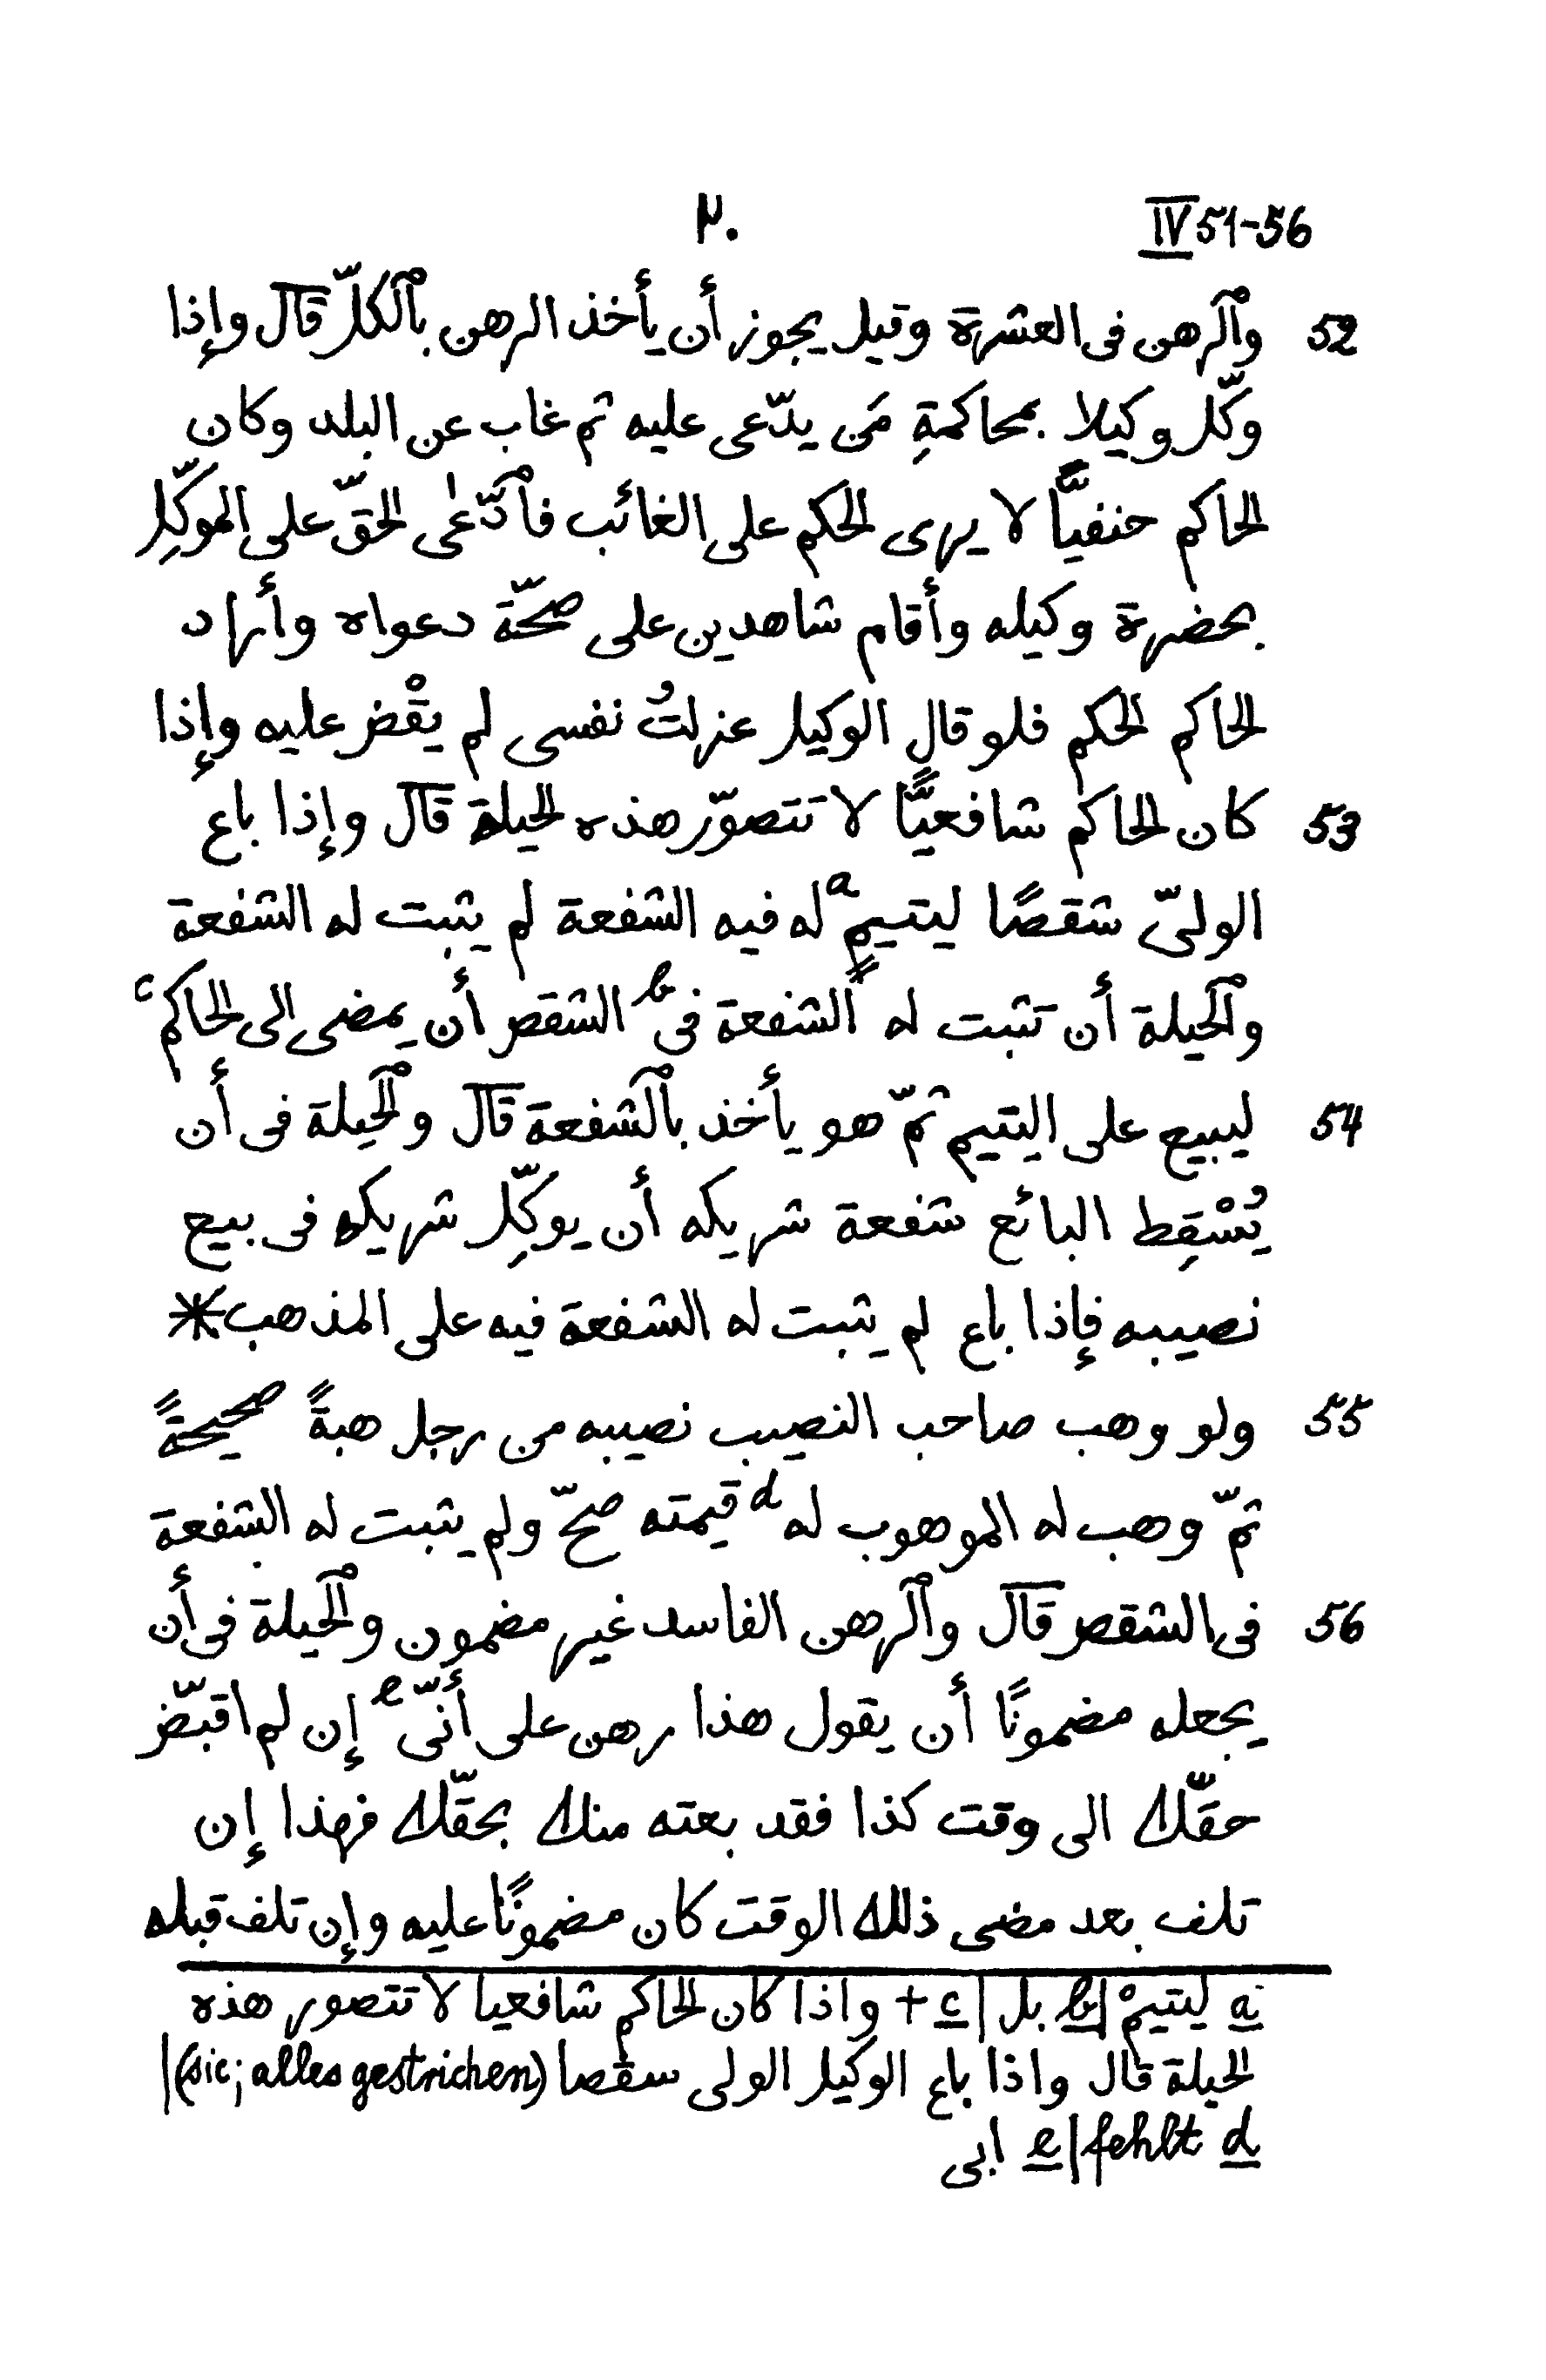 IV 51-56
٢٠
52 وٱلرهن فى العشرة وقيل يجوز أن يأخذ الرهن بٱلكلّ قال وإذا
وكّل وكيلا بمحاكمةِ مَن يدّعى عليه ثم غاب عن البلد وكان
الحاكم حنفيًّا لا يرى الحكم على الغائب فٱدّعٰى الحقّ على الموكِّل
بحضرة وكيله وأقام شاهدين على صحّة دعواه وأراد
الحاكم الحكم فلو قال الوكيل عزلتُ نفسى لم يقْض عليه وإذا
53 كان الحاكم شافعيًّا لا تتصوّر هذه الحيلة قال وإذا باع
الولىّ شقصًا ليتيمٍ a له فيه الشفعة لم يثبت له الشفعة
وٱلحيلة أن تثبت له ٱلشفعة فى b الشقص أن يمضى الى الحاكم c
54 ليبيع على اليتيم ثمّ هو يأخذ بٱلشفعة قال وٱلحِيلة فى أن
يُسْقِط البائع شفعة شريكه أن يوكِّل شريكه فى بيع
نصيبه فإذا باع لم يثبت له الشفعة فيه على المذهب *
55 ولو وهب صاحب النصيب نصيبه من رجل هبةً صحيحةً
ثمّ وهب له الموهوب له d قيمته صحّ ولم يثبت له الشفعة
56 فى الشقص قال وٱلرهن الفاسد غير مضمون وٱلحيلة فى أن
يجعله مضمونًا أن يقول هذا رهن على أنّى e إن لم اقبّض
حقّك الى وقت كذا فقد بعته منك بحقّك فهذا إن
تلف بعد مضى ذلك الوقت كان مضمونًا عليه وإن تلف قبله
a ليتيمْ | b بل | c + واذا كان الحاكم شافعيا لا تتصور هذه
الحيلة قال واذا باع الوكيل الولى سقصا (sic; alles gestrichen) |
d fehlt | e ابى